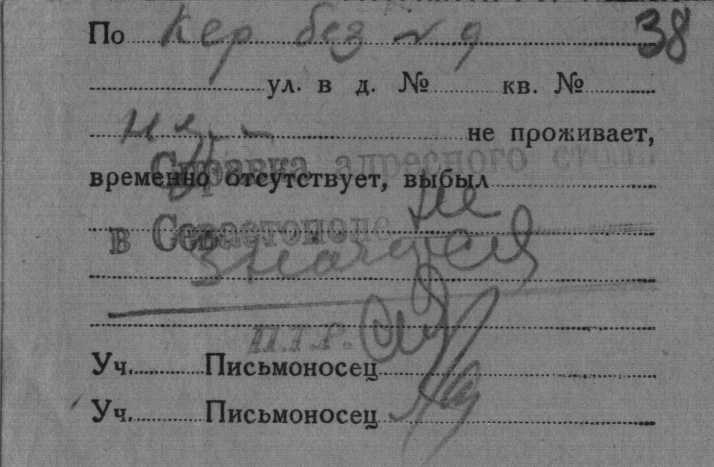 По Кер без № д 38
ул. в д. № кв. №
не проживает,
Справка адресного стола
временно отсутствует, выбыл
не
в Севастополе
значится
Уч. Письмоносец
Уч. Письмоносец